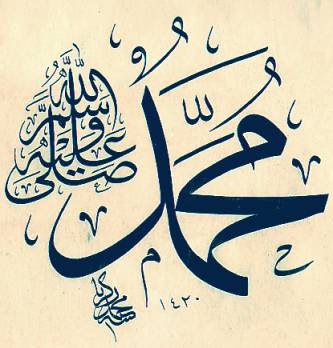 مُحَمَّدٌ
صَلَّى اللَّهُ عَلَيْهِ وَسَلَّمَ
١٤٢٠